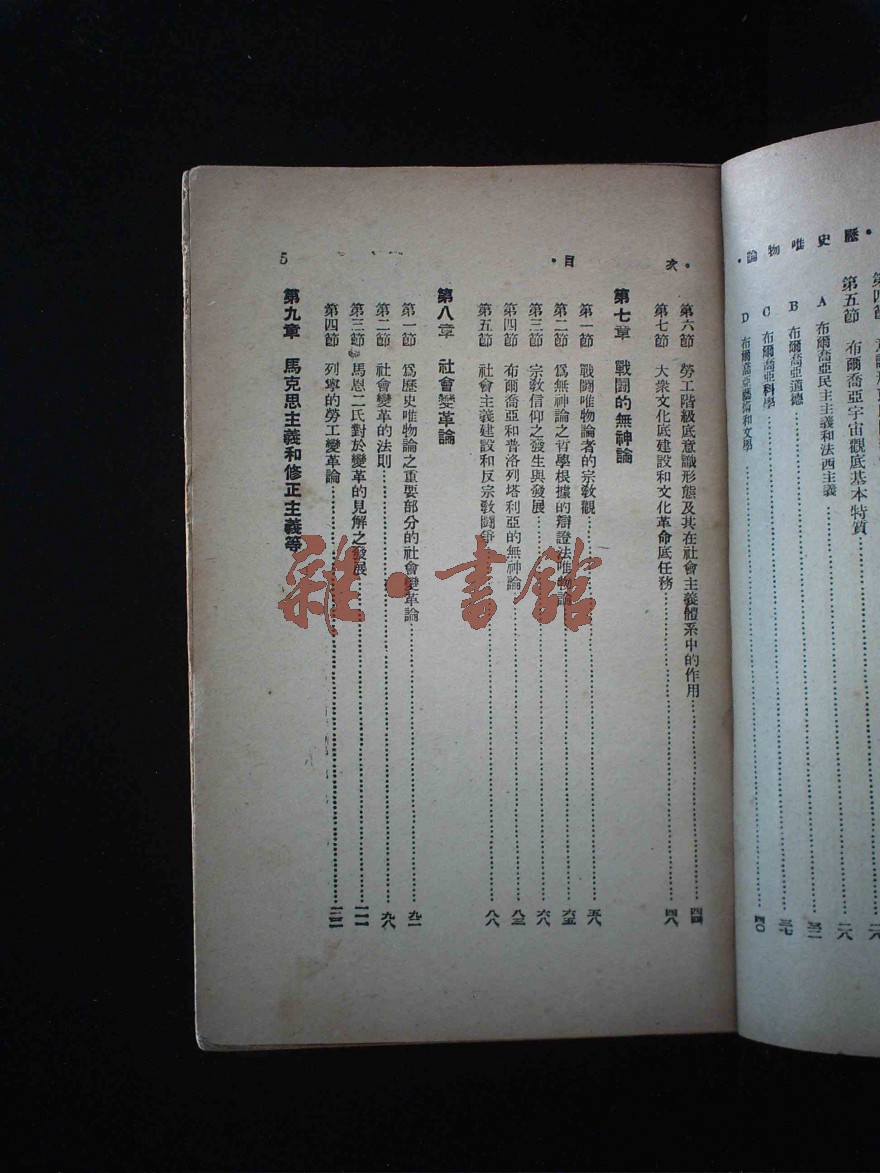 ・歷史唯物論・
第五節 布爾喬亞宇宙觀底基本特質 二八
A 布爾喬亞民主主義和法西主義 三二
B 布爾喬亞道德 三七
C 布爾喬亞科學
D 布爾喬亞藝術和文學 四〇
・目次・
第六節 勞工階級底意識形態及其在社會主義體系中的作用 四四
第七節 大衆文化底建設和文化革命底任務 四八
第七章 戰鬪的無神論
第一節 戰鬪唯物論者的宗教觀 五八
第二節 爲無神論之哲學根據的辯證法唯物論 六五
第三節 宗教信仰之發生與發展 六八
第四節 布爾喬亞和普洛列塔利亞的無神論 八三
第五節 社會主義建設和反宗教鬪爭 八八
第八章 社會變革論
第一節 爲歷史唯物論之重要部分的社會變革論 九一
第二節 社會變革的法則 九八
第三節 馬恩二氏對於變革的見解之發展 一一一
第四節 列寧的勞工變革論
第九章 馬克思主義和修正主義等
5
雜・書館